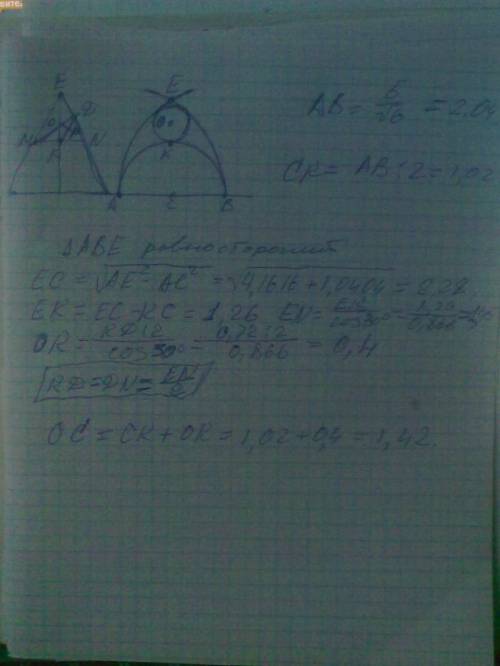 AB = 5/√6 = 2,04
CK = AB:2 = 1,02
E
D
N
K
A
E
O
K
C
B
ΔABE равносторонний
EC = √AE²-AC² = √4,1616+1,0404 = 2,28
EK = EC-KC = 1,26 EN = EK/cos30° = 1,26/0,866 =
OK = KD:2/cos30° = 0,72:2/0,866 = 0,4
KD=DN=EN/2
OC = CK+OK = 1,02+0,4 = 1,42.